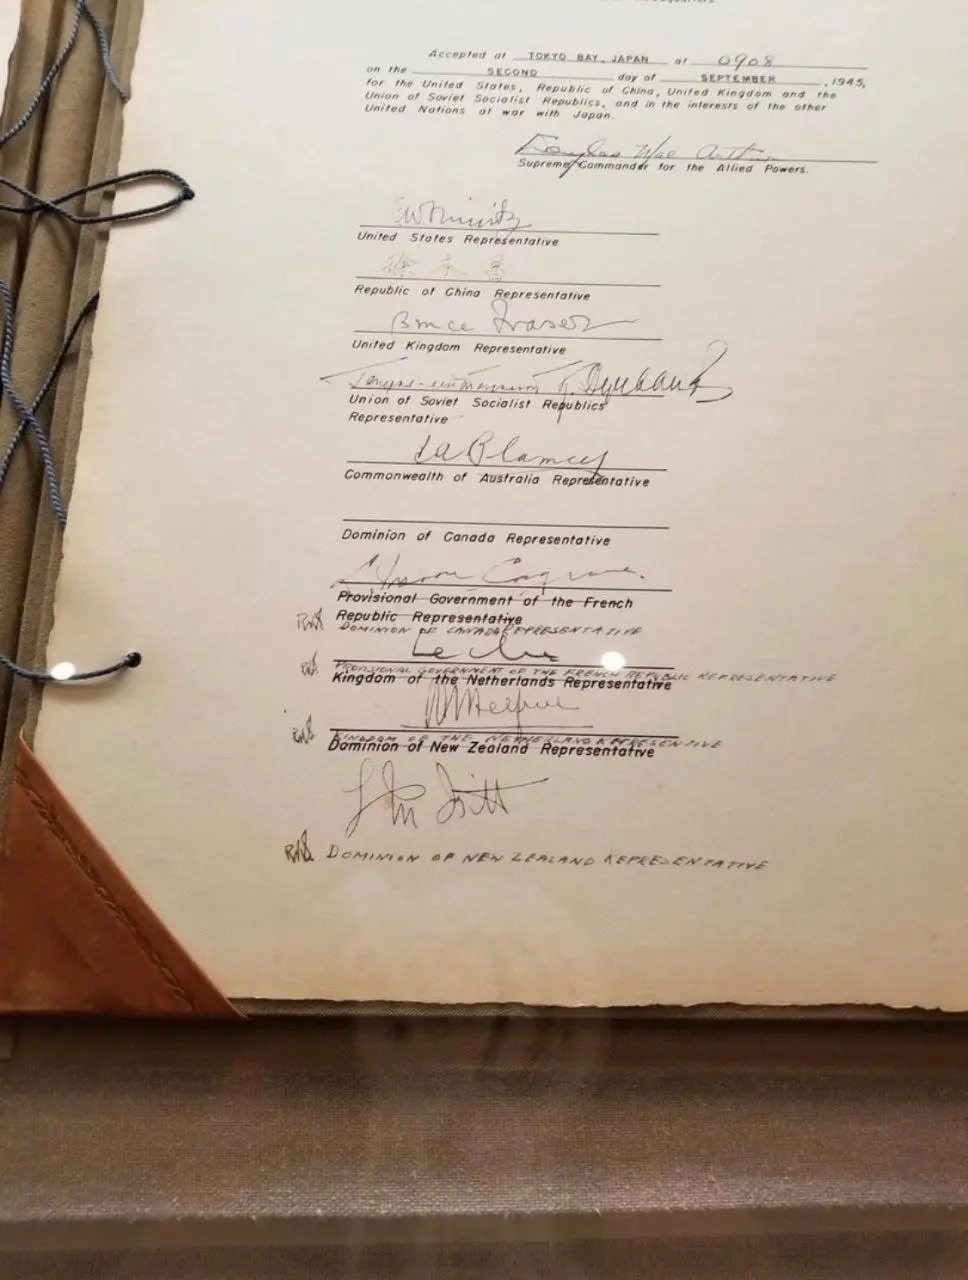 Accepted at TOKYO BAY, JAPAN at 0908
on the SECOND day of SEPTEMBER , 1945,
for the United States, Republic of China, United Kingdom and the
Union of Soviet Socialist Republics, and in the interests of the other
United Nations at war with Japan.
Douglas MacArthur
Supreme Commander for the Allied Powers.
CW Nimitz
United States Representative
徐永昌
Republic of China Representative
Bruce Fraser
United Kingdom Representative
Union of Soviet Socialist Republics
Representative
TA Blamey
Commonwealth of Australia Representative
Dominion of Canada Representative
L. Moore Cosgrave.
Provisional Government of the French
Republic Representative
DOMINION OF CANADA REPRESENTATIVE
Leclerc
PROVISIONAL GOVERNMENT OF THE FRENCH REPUBLIC REPRESENTATIVE
Kingdom of the Netherlands Representative
Helfrich
KINGDOM OF THE NETHERLAND REPRESENTIVE
Dominion of New Zealand Representative
L M Isitt
DOMINION OF NEW ZEALAND REPRESENTATIVE